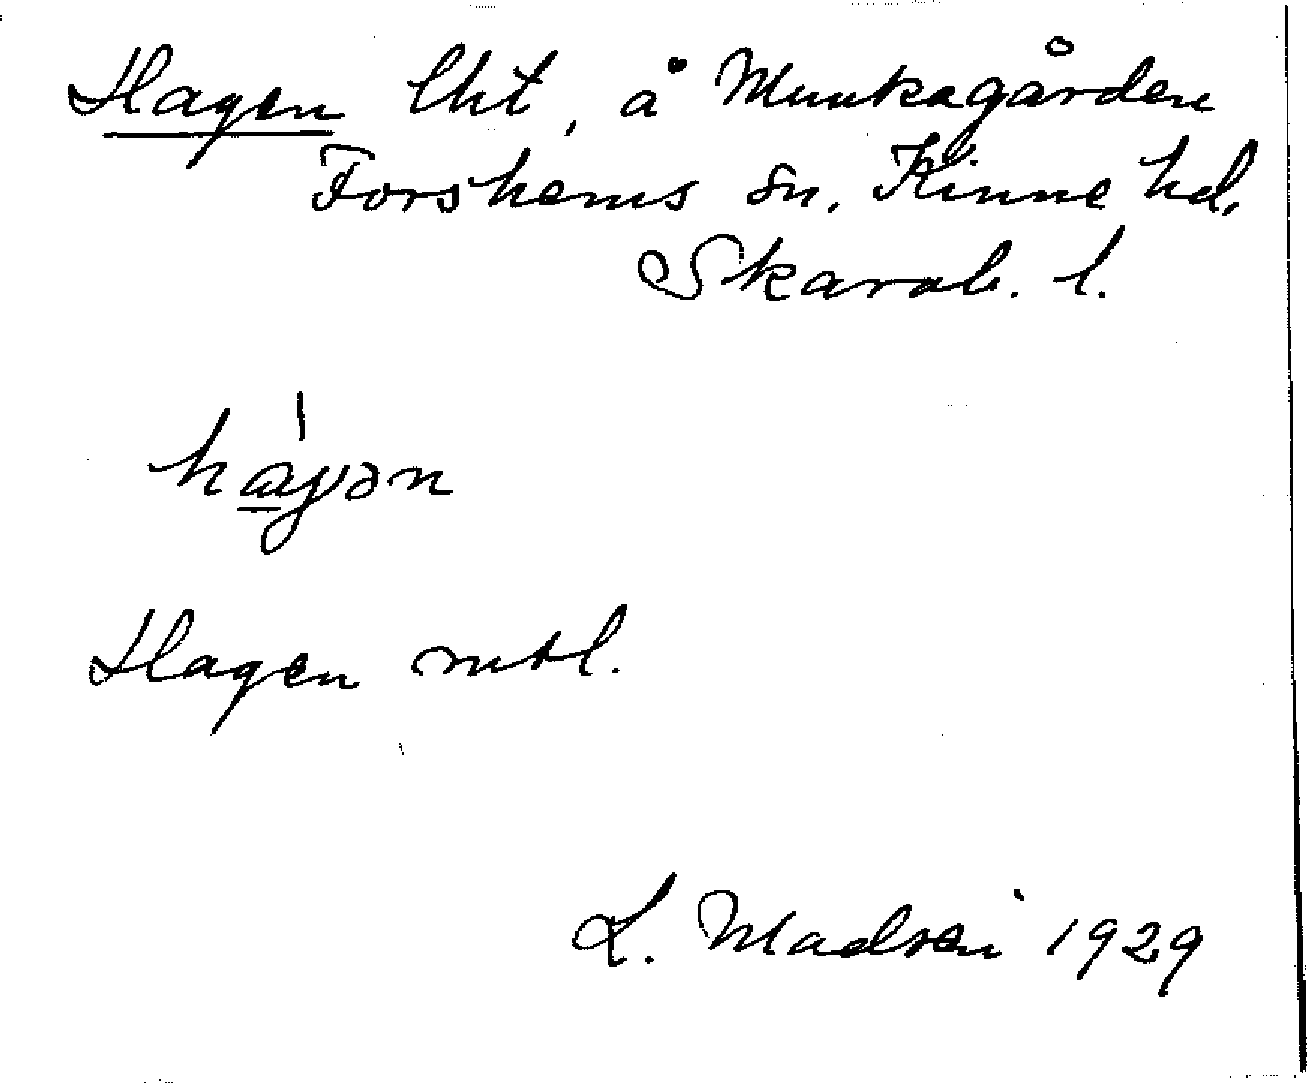 Hagen lht, å Munkagården
Forshems sn. Kinne hd.
Skarab. l.
ha̲ɡən
Hagen mtl.
L. Madsen 1929